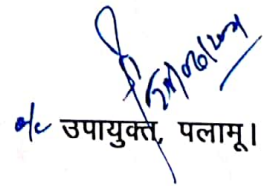 o/c उपायुक्त, पलामू।